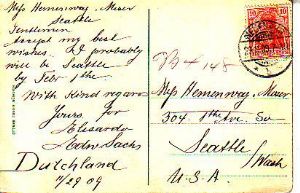 Mess Hemenway + Moser
Seattle
Gentlemen
Accept my best
wishes. I probably
will be Seattle
by Febr 1the
With Kind regard
Yours for
Edw Sachs
Dutchland
11/29 09
B 4 148
Mess Hemenway + Moser
304 1the Ave. So
Seattle
Wash
U.S.A
10 10